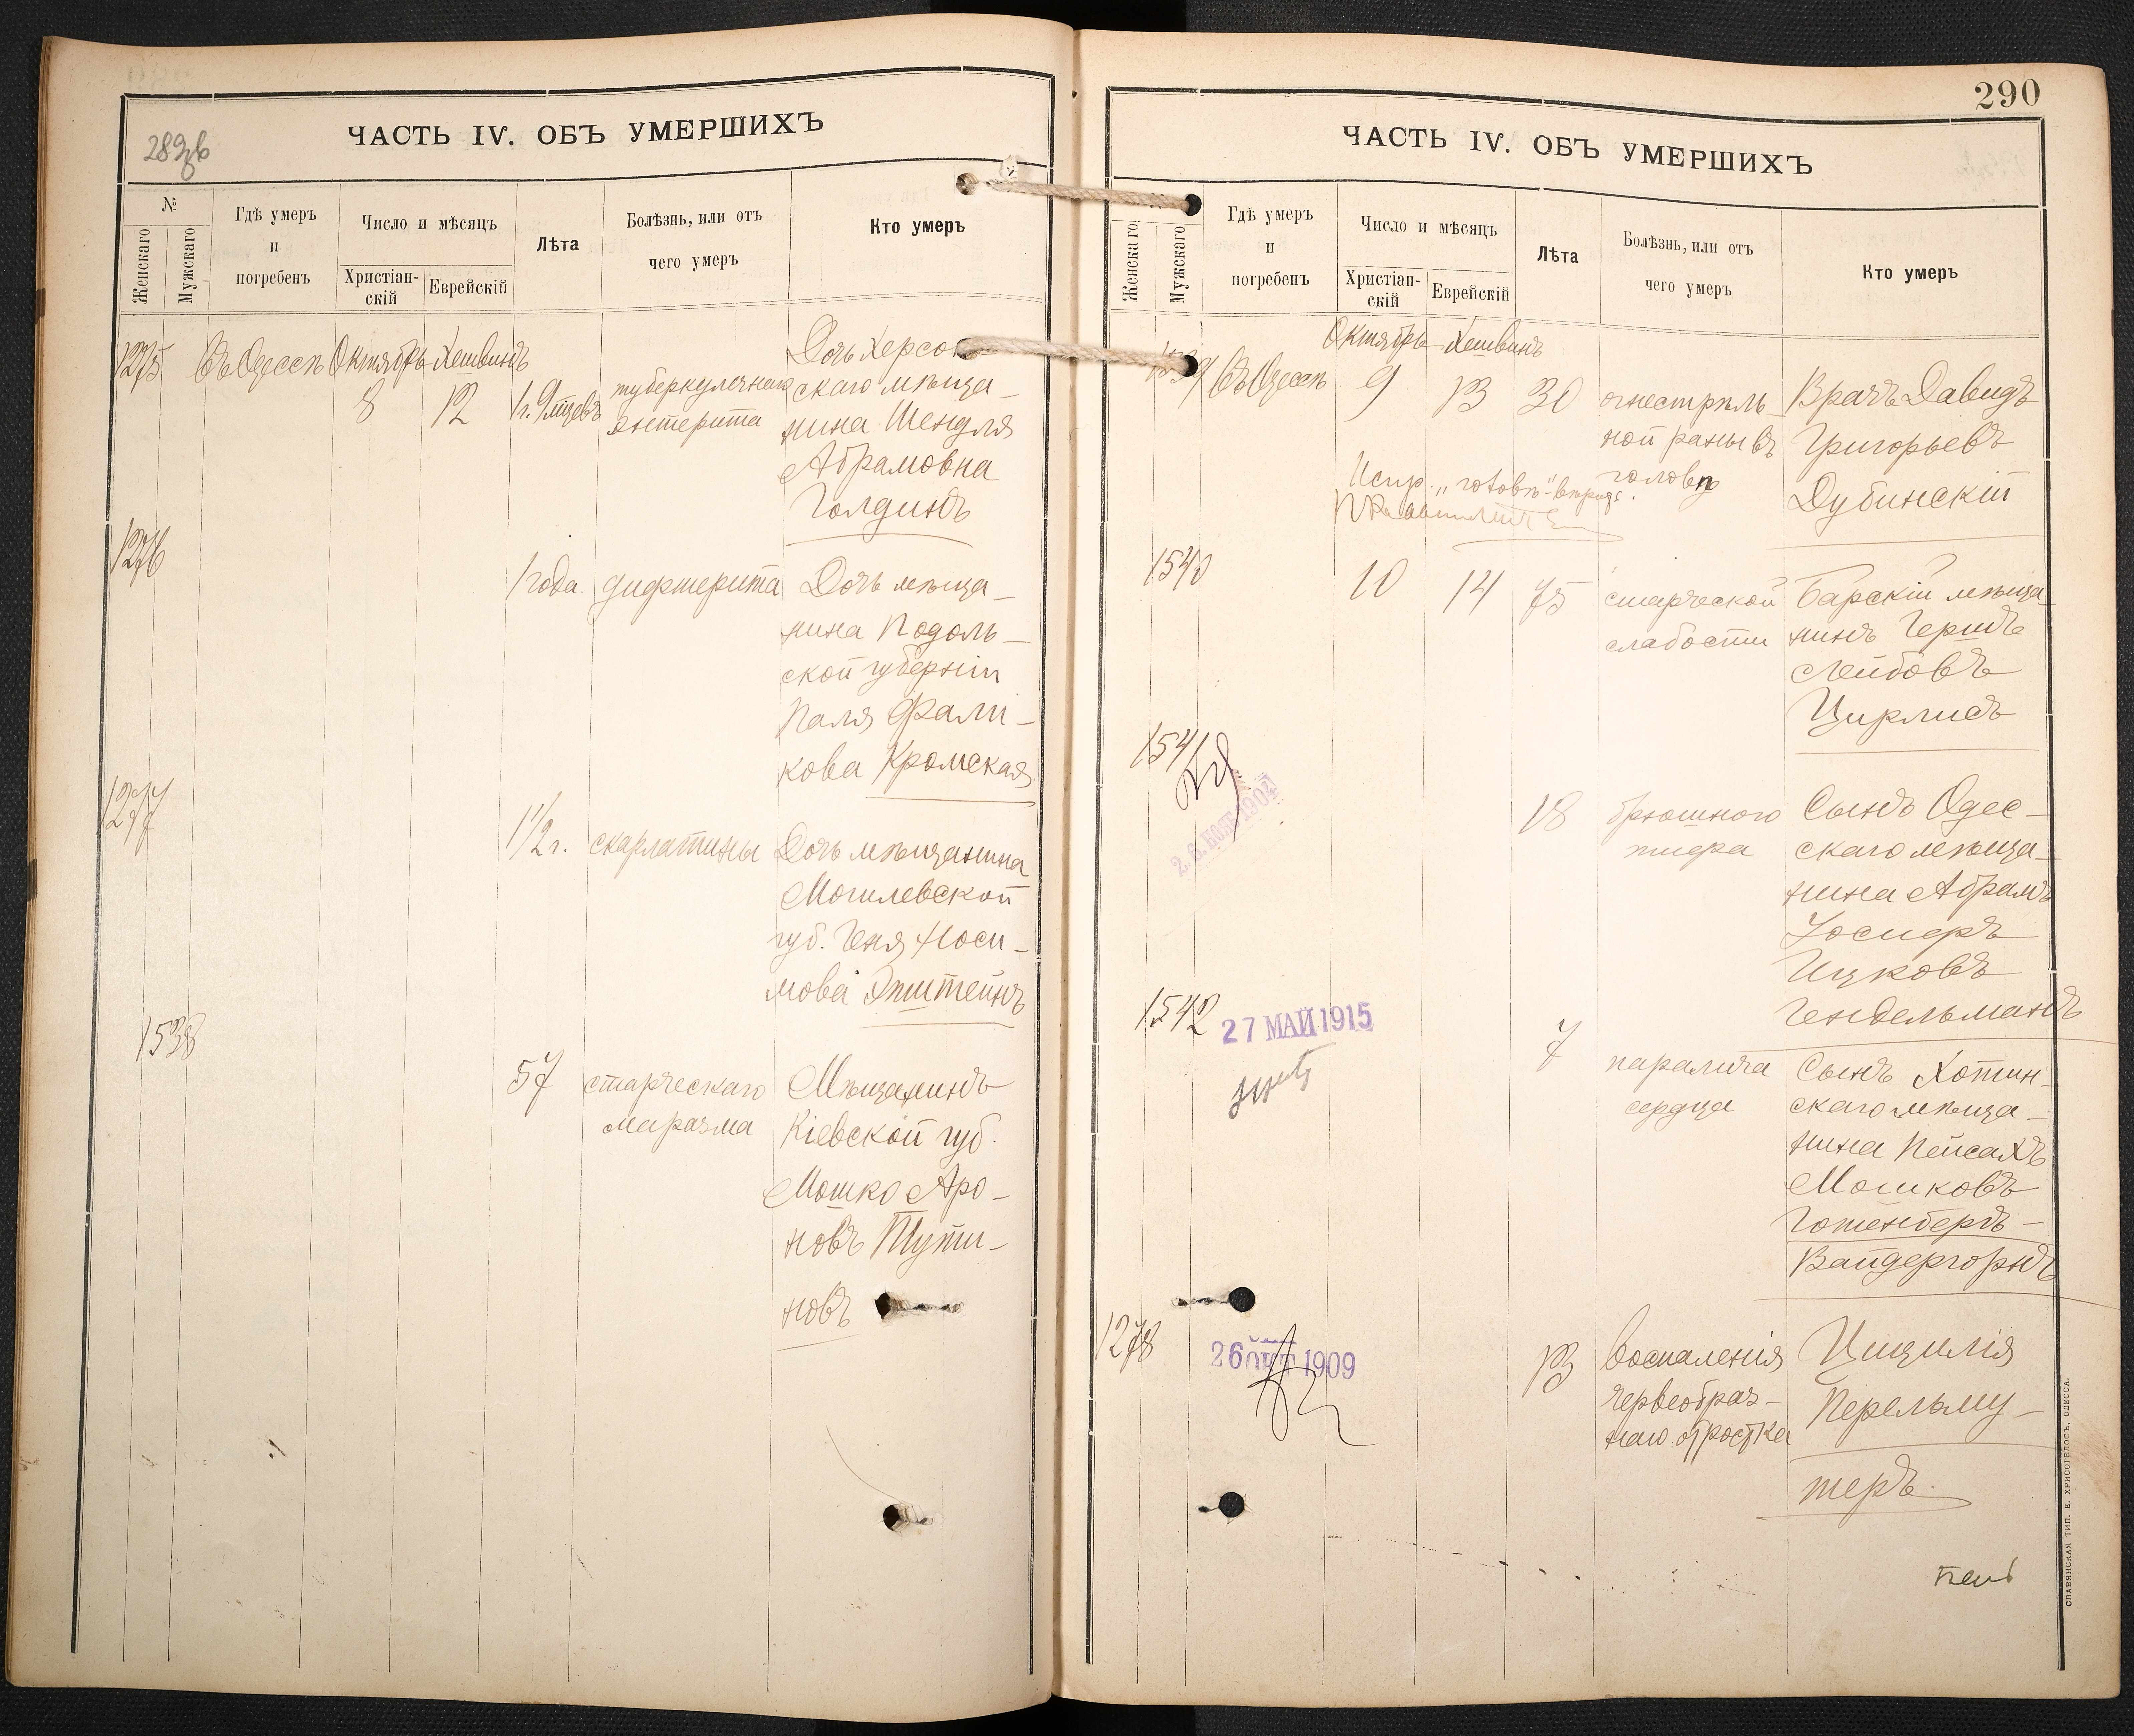 289об
ЧАСТЬ IV. ОБЪ УМЕРШИХЪ
№
Женскаго
Мужскаго
Гдѣ умеръ
и
погребенъ
Число и мѣсяцъ
Христіан-
скій
Еврейскій
Лѣта
Болѣзнь, или отъ
чего умеръ
Кто умеръ
1275 Въ Одессѣ Октябрь Хешвинъ
8 12 1 г. 9 мѣцевъ
туберкулезнаго
энтерита
Дочь Херсон-
скаго мѣща-
нина Шендля
Абрамовна
Голдинъ
1276
1 года. дифтерита
Дочь мѣща-
нина Подоль-
ской губерніи
Паля Фали-
кова Кромская
1277
1 1/2 г. скарлатины
Дочь мѣщанина
Могилевской
губ. Геня Носи-
мова Эпштейнъ
1538
57 старческаго
маразма
Мѣщанинъ
Кіевской губ.
Мошко Аро-
новъ Тути-
новъ
290
ЧАСТЬ IV. ОБЪ УМЕРШИХЪ
Женскаго
Мужскаго
Гдѣ умеръ
и
погребенъ
Число и мѣсяцъ
Христіан-
скій
Еврейскій
Лѣта
Болѣзнь, или отъ
чего умеръ
Кто умеръ
Октябрь Хешвинъ
1539 Въ Одессѣ 9 13 30
огнестрѣль-
ной раны въ
головѣ
Врачъ Давидъ
Григорьевъ
Дубинскій
Испр. „головѣ"
1540
10 14 75
старческой
слабости
Барскій мѣща-
нинъ Гершъ
Лейбовъ
Цирлисъ
1541
1907
18 брюшного
тифа
Сынъ Одес-
скаго мѣща-
нина Абрамъ
Іосифъ
Ицковъ
Гендельманъ
1542
27 МАЙ 1915
7 паралича
сердца
Сынъ Хотин-
скаго мѣща-
нина Пейсахъ
Мошковъ
Готенберъ-
Вайдергорнъ
1278
26 ОКТ 1909
13 воспаленія
червеобраз-
наго отростка
Цицилія
Перельму-
теръ.
СЛАВЯНСКАЯ ТИП. Е. ХРИСОГЕЛОСЪ, ОДЕССА.